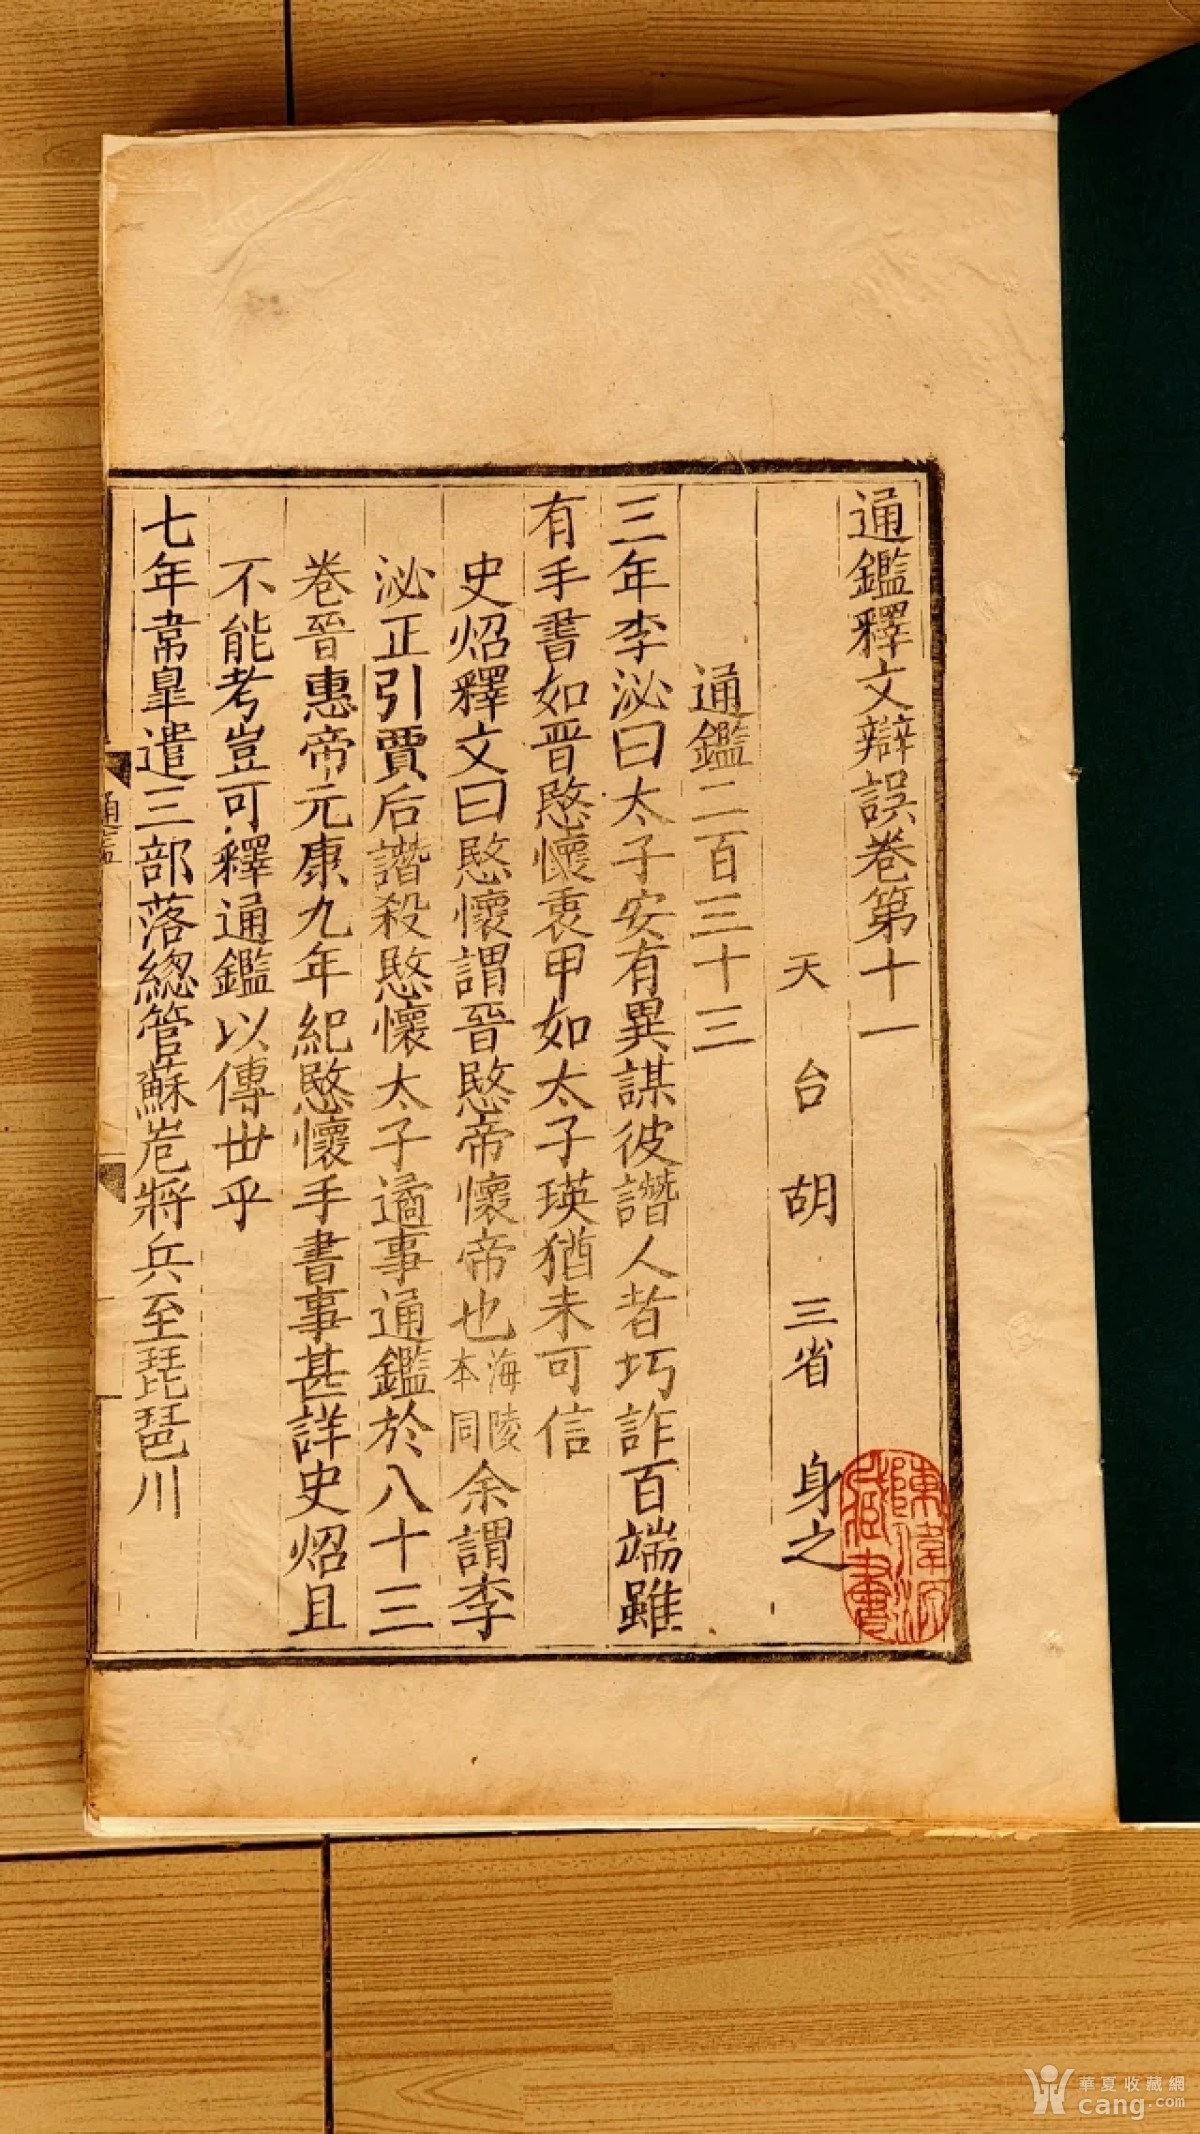 通鑑釋文辯誤卷第十一
天台胡三省身之
通鑑二百三十三
三年李泌曰太子安有異謀彼譖人者巧詐百端雖
有手書如晋愍懷衷甲如太子瑛猶未可信
史炤釋文曰愍懷謂晋愍帝懷帝也海陵本同余謂李
泌正引賈后譖殺愍懷太子遹事通鑑於八十三
卷晉惠帝元康九年紀愍懷手書事甚詳史炤且
不能考豈可釋通鑑以傳丗乎
七年韋臯遣三部落緫管蘇峞將兵至琵琶川
通鑑
藏書
華夏收藏網
cang.com